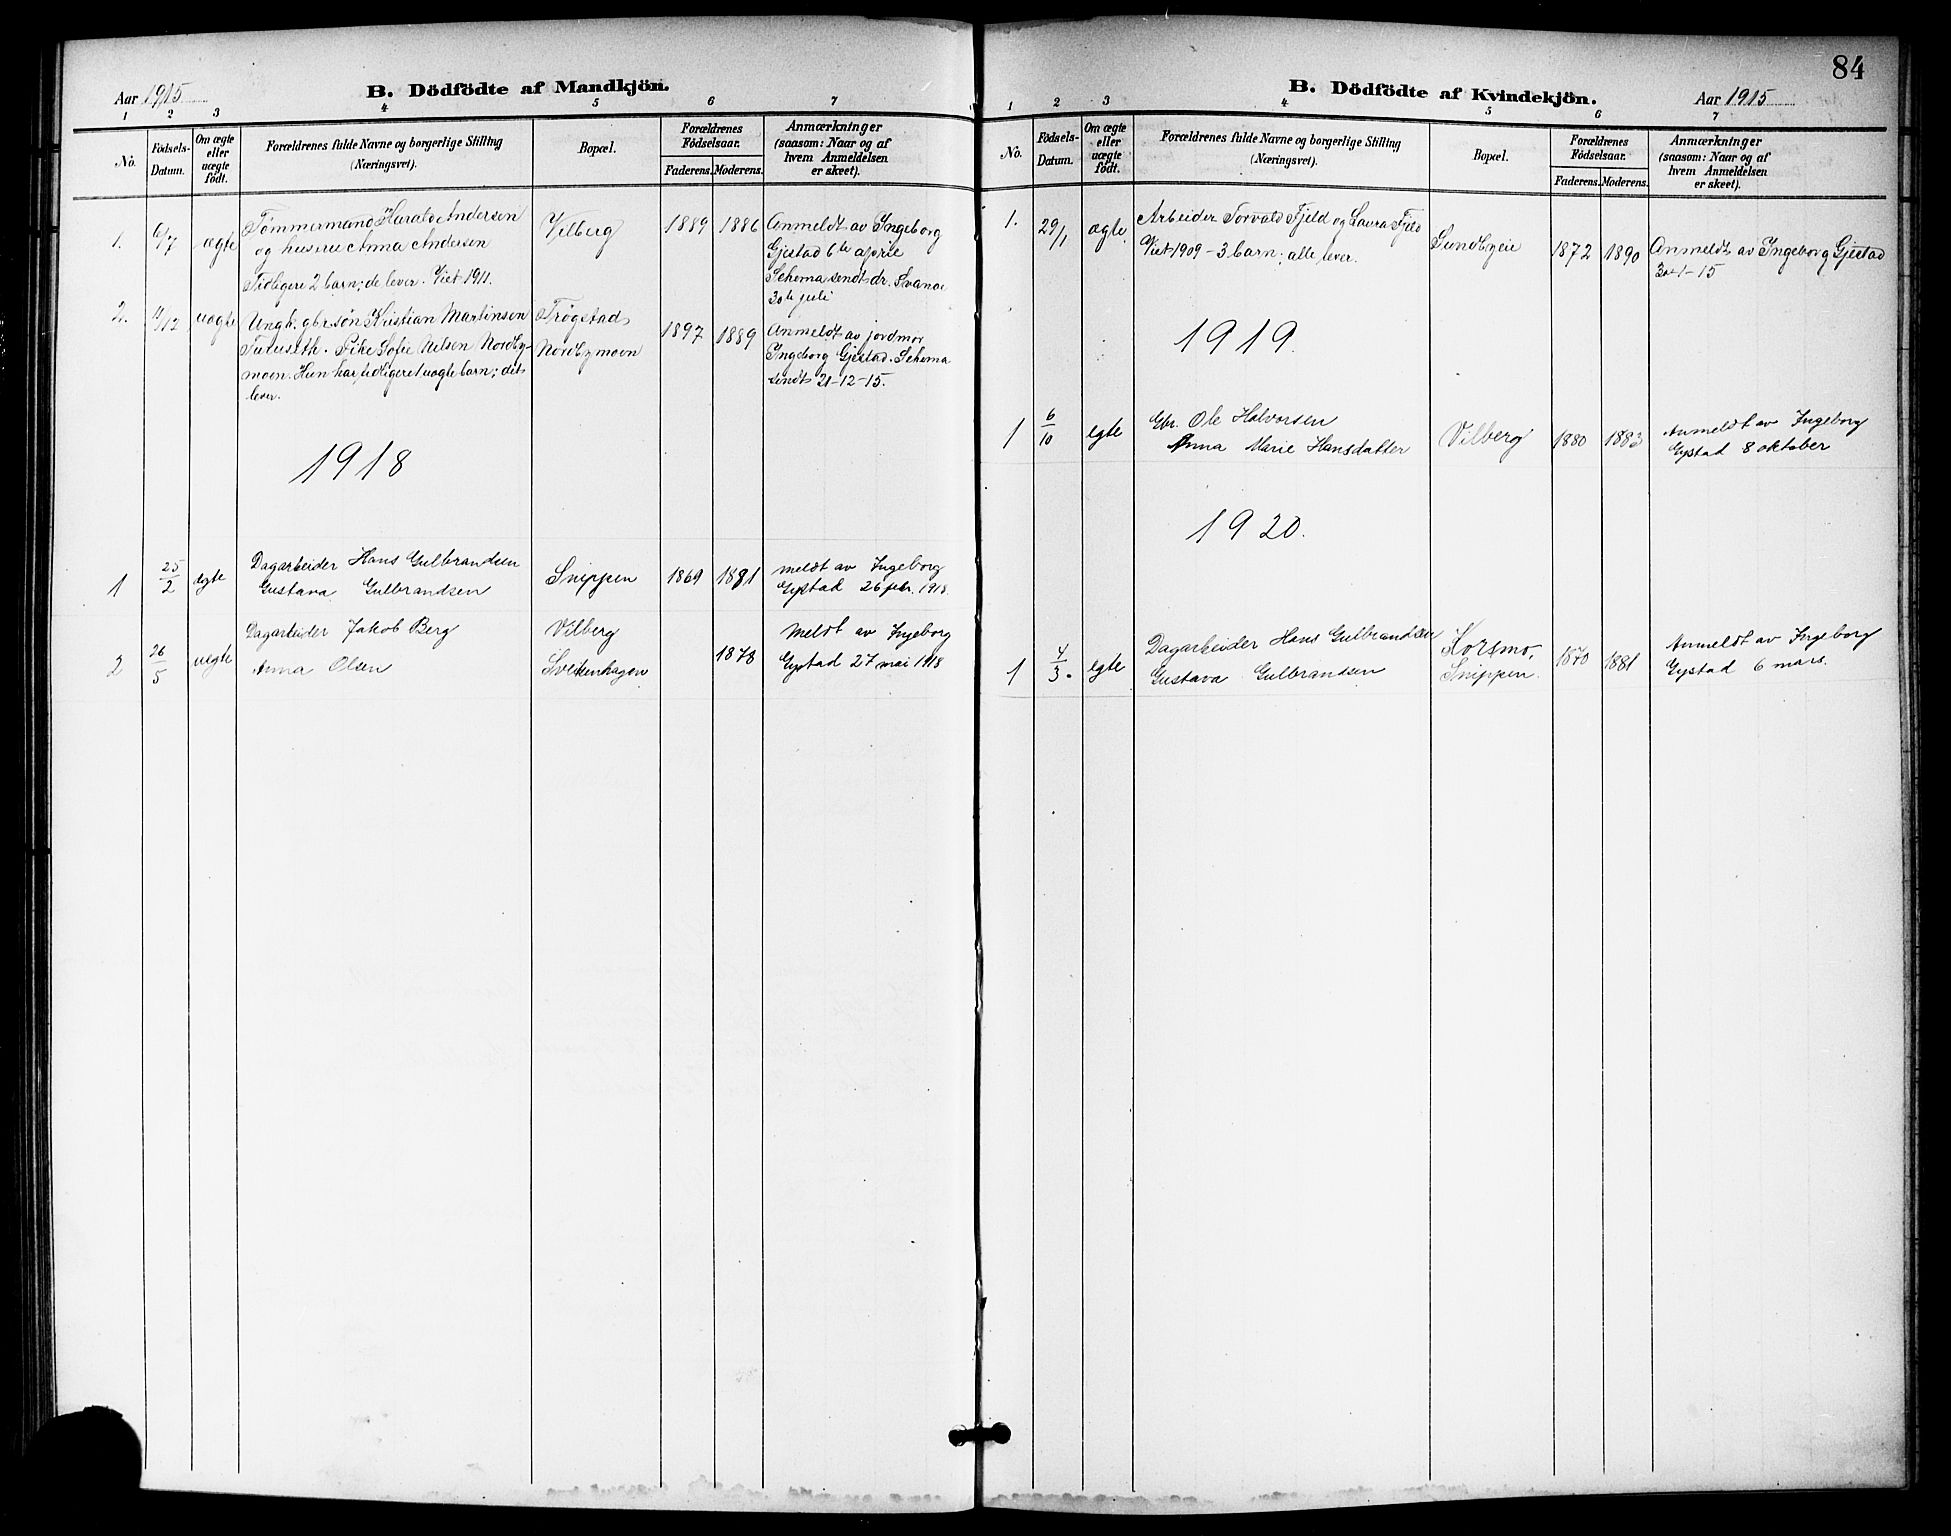 84
Aar 1915
B. Dödfödte af Mandkjön.
1 2 3 4 5 6 7
No.
Födsels-Datum.
Om ægte eller uægte födt.
Forældrenes fulde Navne og borgerlige Stilling
(Næringsvei).
Bopæl.
Forældrenes Födselsaar.
Faderens. Moderens.
Anmærkninger
(saasom: Naar og af
hvem Anmeldelsen
er skeet).
1. 6/7 ægte Tømmermand Harald Andersen Vilberg 1889 1886 Anmeldt av Ingeborg
og hustru Anna Andersen Gjestad 6te
Tidligere 2 barn; de lever. Viet 1911. Schema sendt dr. Svanøe
30te juli
2. 11/12 uægte Ungk. gbr.søn Kristian Martinsen Trøgstad 1897 1889 Anmeldt av jordmor
Furuseth. Pike Sofie Nilsen Nordby- Nordbymoen Ingeborg Gjestad. Schema
moen. Hun har tidligere 1 uægte barn; det sendt 21-12-15.
lever.
1918
1 25/2 egte Dagarbeider Hans Gulbrandsen Snippen 1869 1881 meldt av Ingeborg
Gustava Gulbrandsen Gystad 26 febr. 1918.
2 26/5 uegte Dagarbeider Jakob Berg Vilberg 1878 Meldt av Ingeborg
Anna Olsen Gystad 27 mai 1918
B. Dödfödte af Kvindekjön.
Aar 1915
1 2 3 4 5 6 7
No.
Födsels-Datum.
Om ægte eller uægte födt.
Forældrenes fulde Navne og borgerlige Stilling
(Næringsvei).
Bopæl.
Forældrenes Födselsaar.
Faderens. Moderens.
Anmærkninger
(saasom: Naar og af
hvem Anmeldelsen
er skeet).
1. 29/1 ægte. Arbeider Torvald Fjeld og Laura Fjeld Sundbyeie 1872 1890 Anmeldt av Ingeborg Gjestad
Viet 1909 - 3 barn; alle lever. 30-1-15
1919.
1 6/10 egte Gbr. Ole Halvorsen Vilberg 1880 1883 Anmeldt av Ingeborg
Anna Marie Hansdatter Gystad 8 oktober
1920.
1 4/3. egte Dagarbeider Hans Gulbrandsen Korsmo, 1870 1881 Anmeldt av Ingeborg
Gustava Gulbrandsen Snippen. Gystad 6 mars.